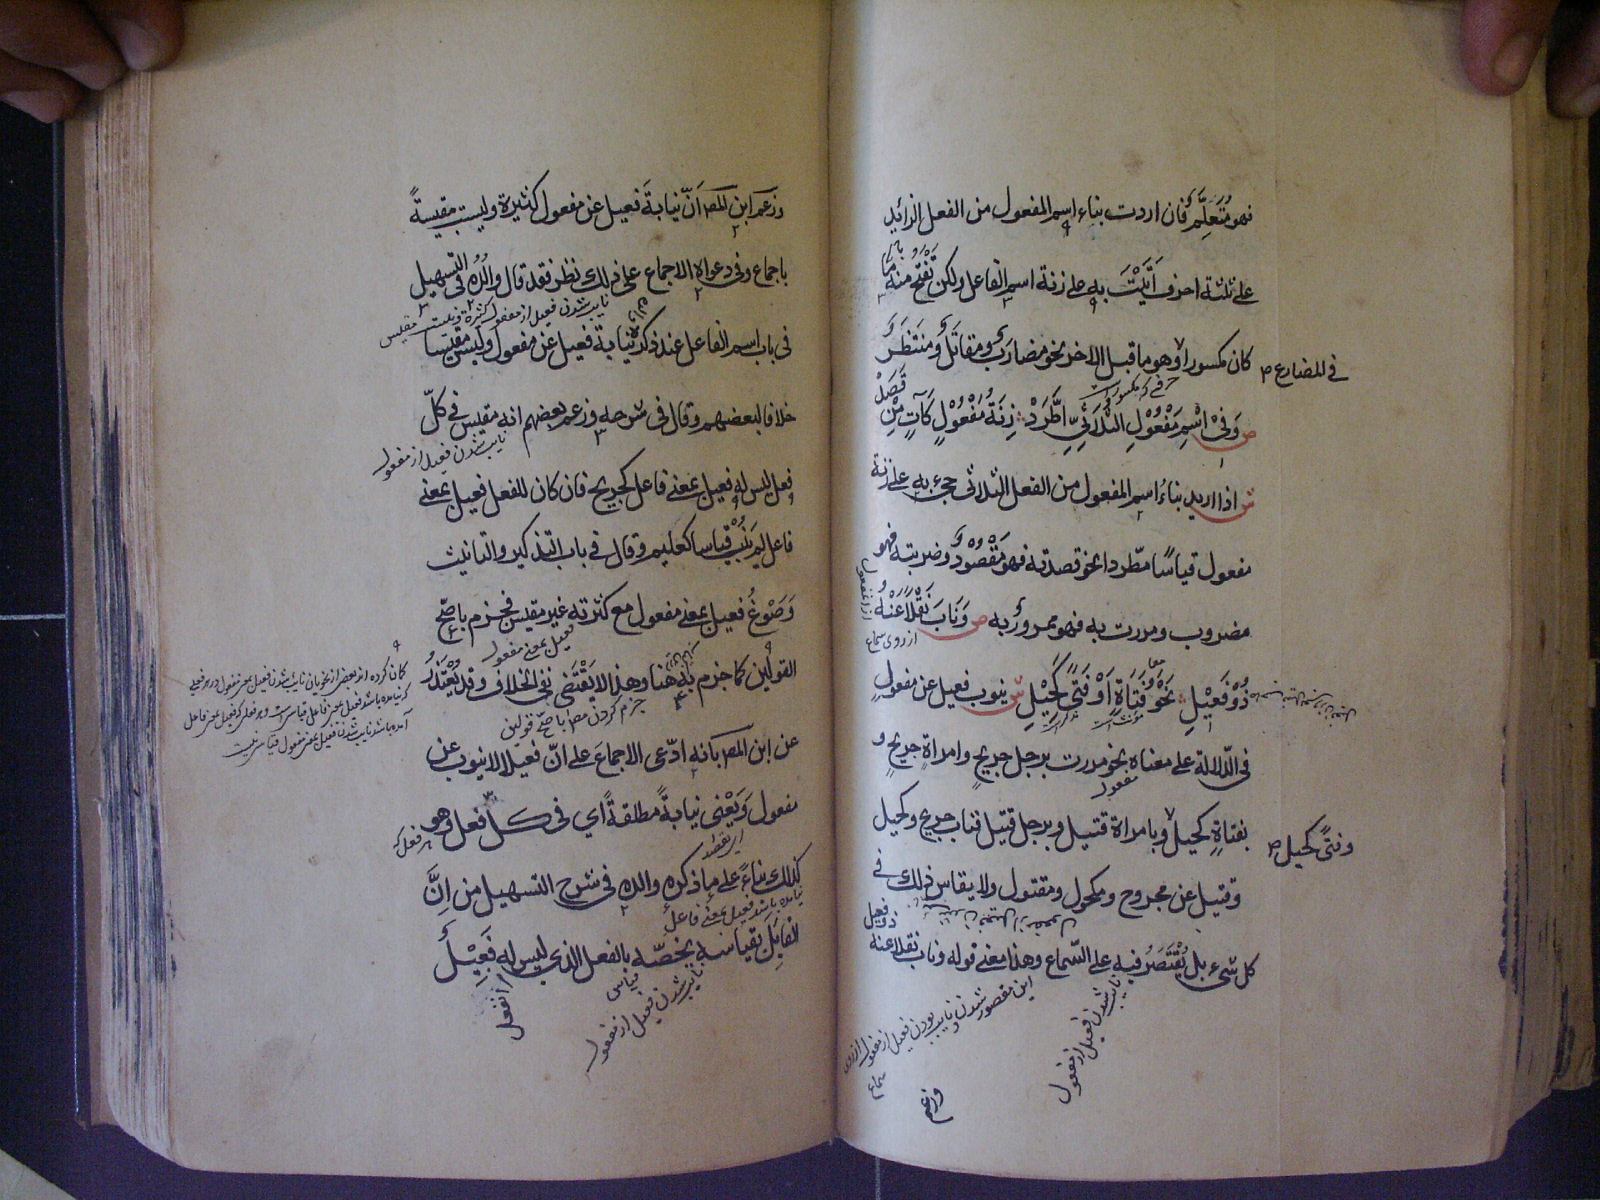 فهو مُتَعَلَّم فان اردت بناء اسم المفعول من الفعل الزائد
على ثلثة احرف اَتَيْتَ به على زنة اسم الفاعل ولكن تَفْتَحُ منه ما
كان مكسورا وهو ما قبل الاخر نحو مضارَب ومقاتَل ومنتظَر
في المضارع
حرفي كه مكسور است
ص وَفِيْ اسْمِ مَفْعُوْلِ الثُّلَاثِيِّ اطَّرَدْ زِنَةُ مَفْعُوْلٍ كَآتٍ مِّنْ قَصَدْ
ش اذا اريد بناءُ اسم المفعول من الفعل الثلاثى جىء به على زنة
مفعول قياسًا مطّردا نحو قصدته فهو مَقْصُوْدٌ وضربته فهو
مضروب ومررت به فهو ممرور به ص وَنَابَ نَقْلًا عَنْهُ
از روى سماع
ذُوْ فَعِيْلِ نَحْوُ فَتَاةٍ اَوْ فَتًى كَحِيْلِ ش ينوب فعيل عن مفعول
فى الدّلالة على معناه نحو مررت برجل جريح وامراة جريح و
مفعول
بفتاةٍ كحيل وبامراة قتيل وبرجل قتيل فناب جريح وكحيل
وفتًى كحيل
وقتيل عن مجروح ومكحول ومقتول ولا يقاس ذلك فى
كل شىء بل يُقْتَصَرُ فيه على السّماع وهذا معنى قوله وناب نقلا عنه
ذو فعيل
نايب شدن فعيل از مفعول
اين مقصور شدن ونايب بودن فعيل از مفعول از روى
سماع
وزعم
وزعم ابن المص اَنّ نيابةَ فعيل عن مفعول كثيرة وليست مقيسةً
باجماع وفى دعواه الاجماع على ذلك نظر فقد قال والدُه فى التسهيل
نايب شدن فعيل از مفعول
فى باب اسم الفاعل عند ذكره نيابة فعيل عن مفعول وليس مقيسًا
خلافا لبعضهم وقال فى شرحه وزعم بعضهم انه مقيس فى كلّ
نايب شدن فعيل از مفعول
فعل ليس له فعيل بمعنى فاعل كجريح فان كان للفعل فعيل بمعنى
فاعل لم يَنُبْ قياسا كعليم وقال فى باب التذكير والتانيث
وَصَوْغُ فعيل بمعنى مفعول مع كثرته غير مقيس فجزم باصحّ
فعيل بمعنى مفعول
القولين كما جزم به هُنا وهذا لا يَقْتَضى نفى الخلاف وقد يُعْتَذَرُ
جزم كردن مص باصحّ قولين
عن ابن المص بانه ادّعى الاجماعَ على انّ فعيلا لا ينوب عن
مفعول وَيَعْنى نيابةً مطلقةً اي فى كل فعل وهو
كذلك بناءً على ما ذكره والده فى شرح التسهيل من اِنَّ
القايلَ بقياسه يخصّه بالفعل الذى ليس له فَعِيْلَ
قياسى
نايب شدن فعيل از مفعول